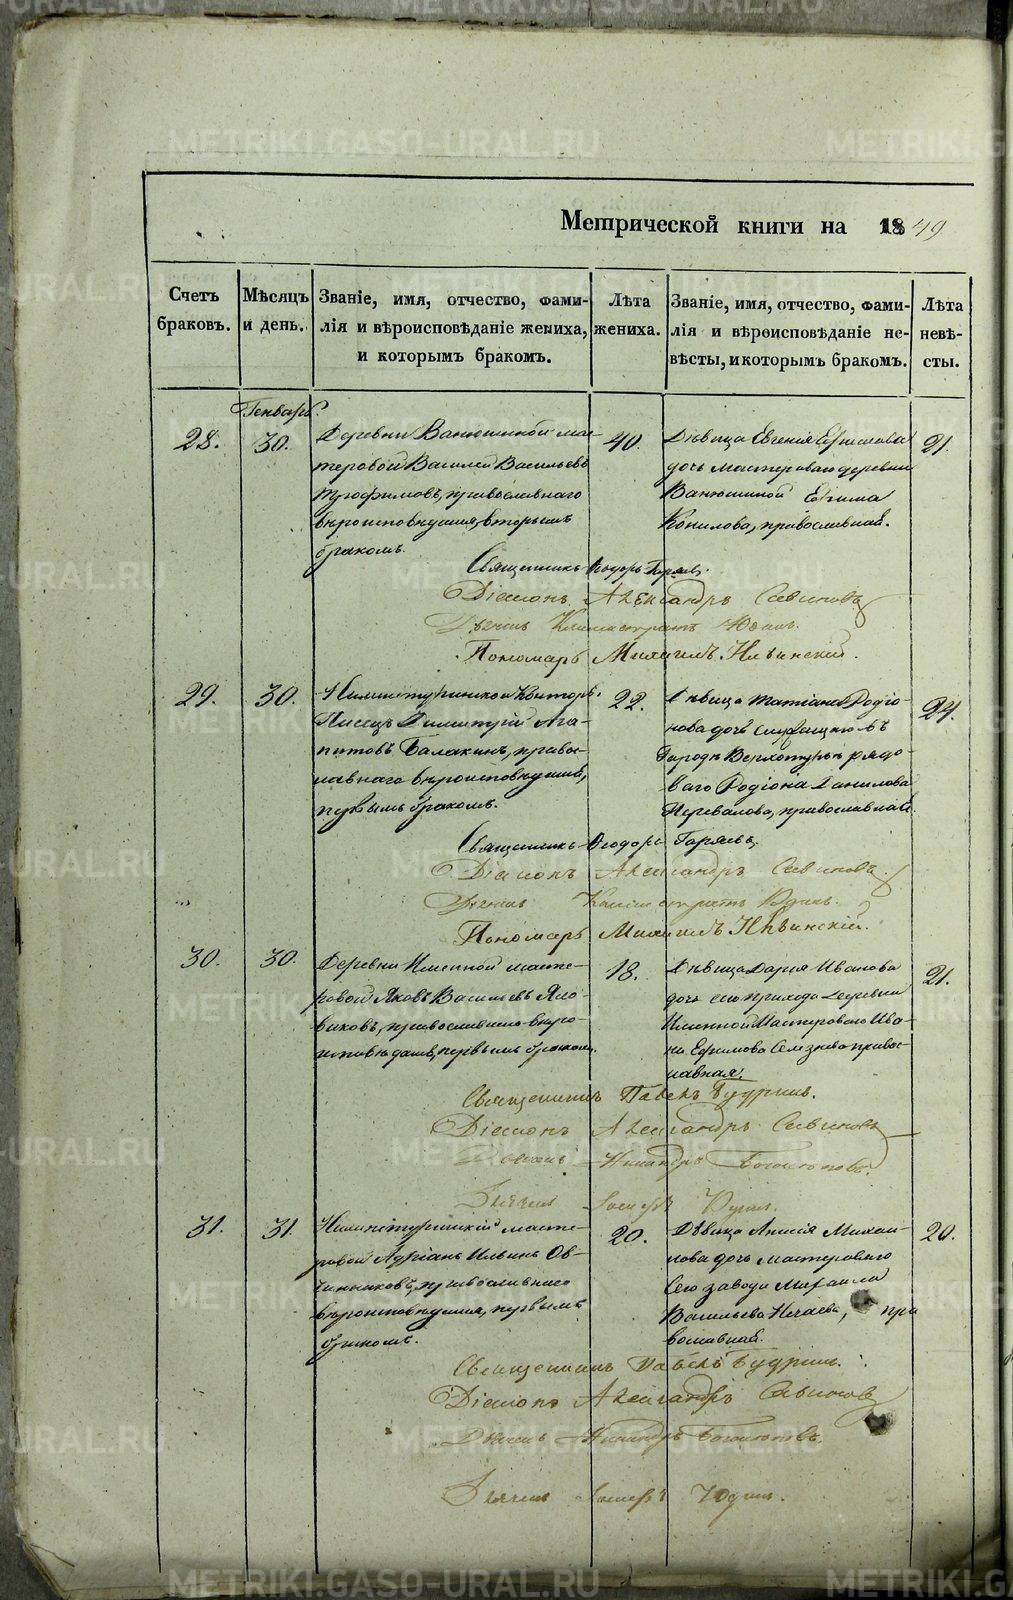 METRIKI.GASO-URAL.RU
Метрической книги на 1849
Счетъ браковъ.
Мѣсяцъ и день.
Званіе, имя, отчество, фами-
лія и вѣроисповѣданіе жениха,
и которымъ бракомъ.
Лѣта жениха.
Званіе, имя, отчество, фами-
лія и вѣроисповѣданіе не-
вѣсты, и которымъ бракомъ.
Лѣта невѣ-
сты.
Генварь.
28.
30.
Деревни Ванюшиной мас-
теровой Василей Васильевъ
Трофимовъ, православнаго
вѣроисповѣданія, вторымъ
бракомъ.
40.
Дѣвица Евгенія Ефимова
дочь мастероваго деревни
Ванюшиной Ефима
православная.
21.
Священникъ Ѳеодоръ Горяевъ.
Діаконъ Александръ Савиновъ
Дьячекъ Каллистратъ Юдинъ.
Пономарь Михаилъ Ильинскій.
29.
30.
Нижнетуринской Конторы
Писецъ Димитрій Ага-
питовъ Балакинъ, правос-
лавнаго вѣроисповѣданія,
первымъ бракомъ.
22.
Дѣвица Татіана Родіо-
нова дочь служащаго въ
Городѣ Верхотурьѣ рядо-
ваго Родіона Данилова
Перевалова, православная.
Священникъ Ѳеодоръ Горяевъ.
Діаконъ Александръ Савиновъ.
Дьячекъ Каллистратъ Юдинъ.
Пономарь Михаилъ Ильинскій.
30.
30.
Деревни Именной масте-
ровой Яковъ Васильевъ Яко-
виковъ, православнаго вѣро-
исповѣданія, первымъ бракомъ.
18.
Дѣвица Дарья Иванова
дочь сего прихода деревни
Именной Мастероваго Ива-
на Ефимова Селезнева правос-
лавная.
21.
Священникъ Павелъ Будринъ.
Діаконъ Александръ Савиновъ
Дьячекъ Никандръ
Дьячекъ Юдинъ.
31.
31.
Нижнетуринскій масте-
ровой Адріанъ Ильинъ Ов-
чинниковъ, православнаго
вѣроисповѣданія, первымъ
бракомъ.
20.
Дѣвица Анисія Михаи-
лова дочь мастероваго
сего завода Михаила
Васильева Нечаева, пра
вославная.
20.
Священникъ Павелъ Будринъ.
Діаконъ Александръ Савиновъ
Дьячекъ Никандръ
Дьячекъ Юдинъ.